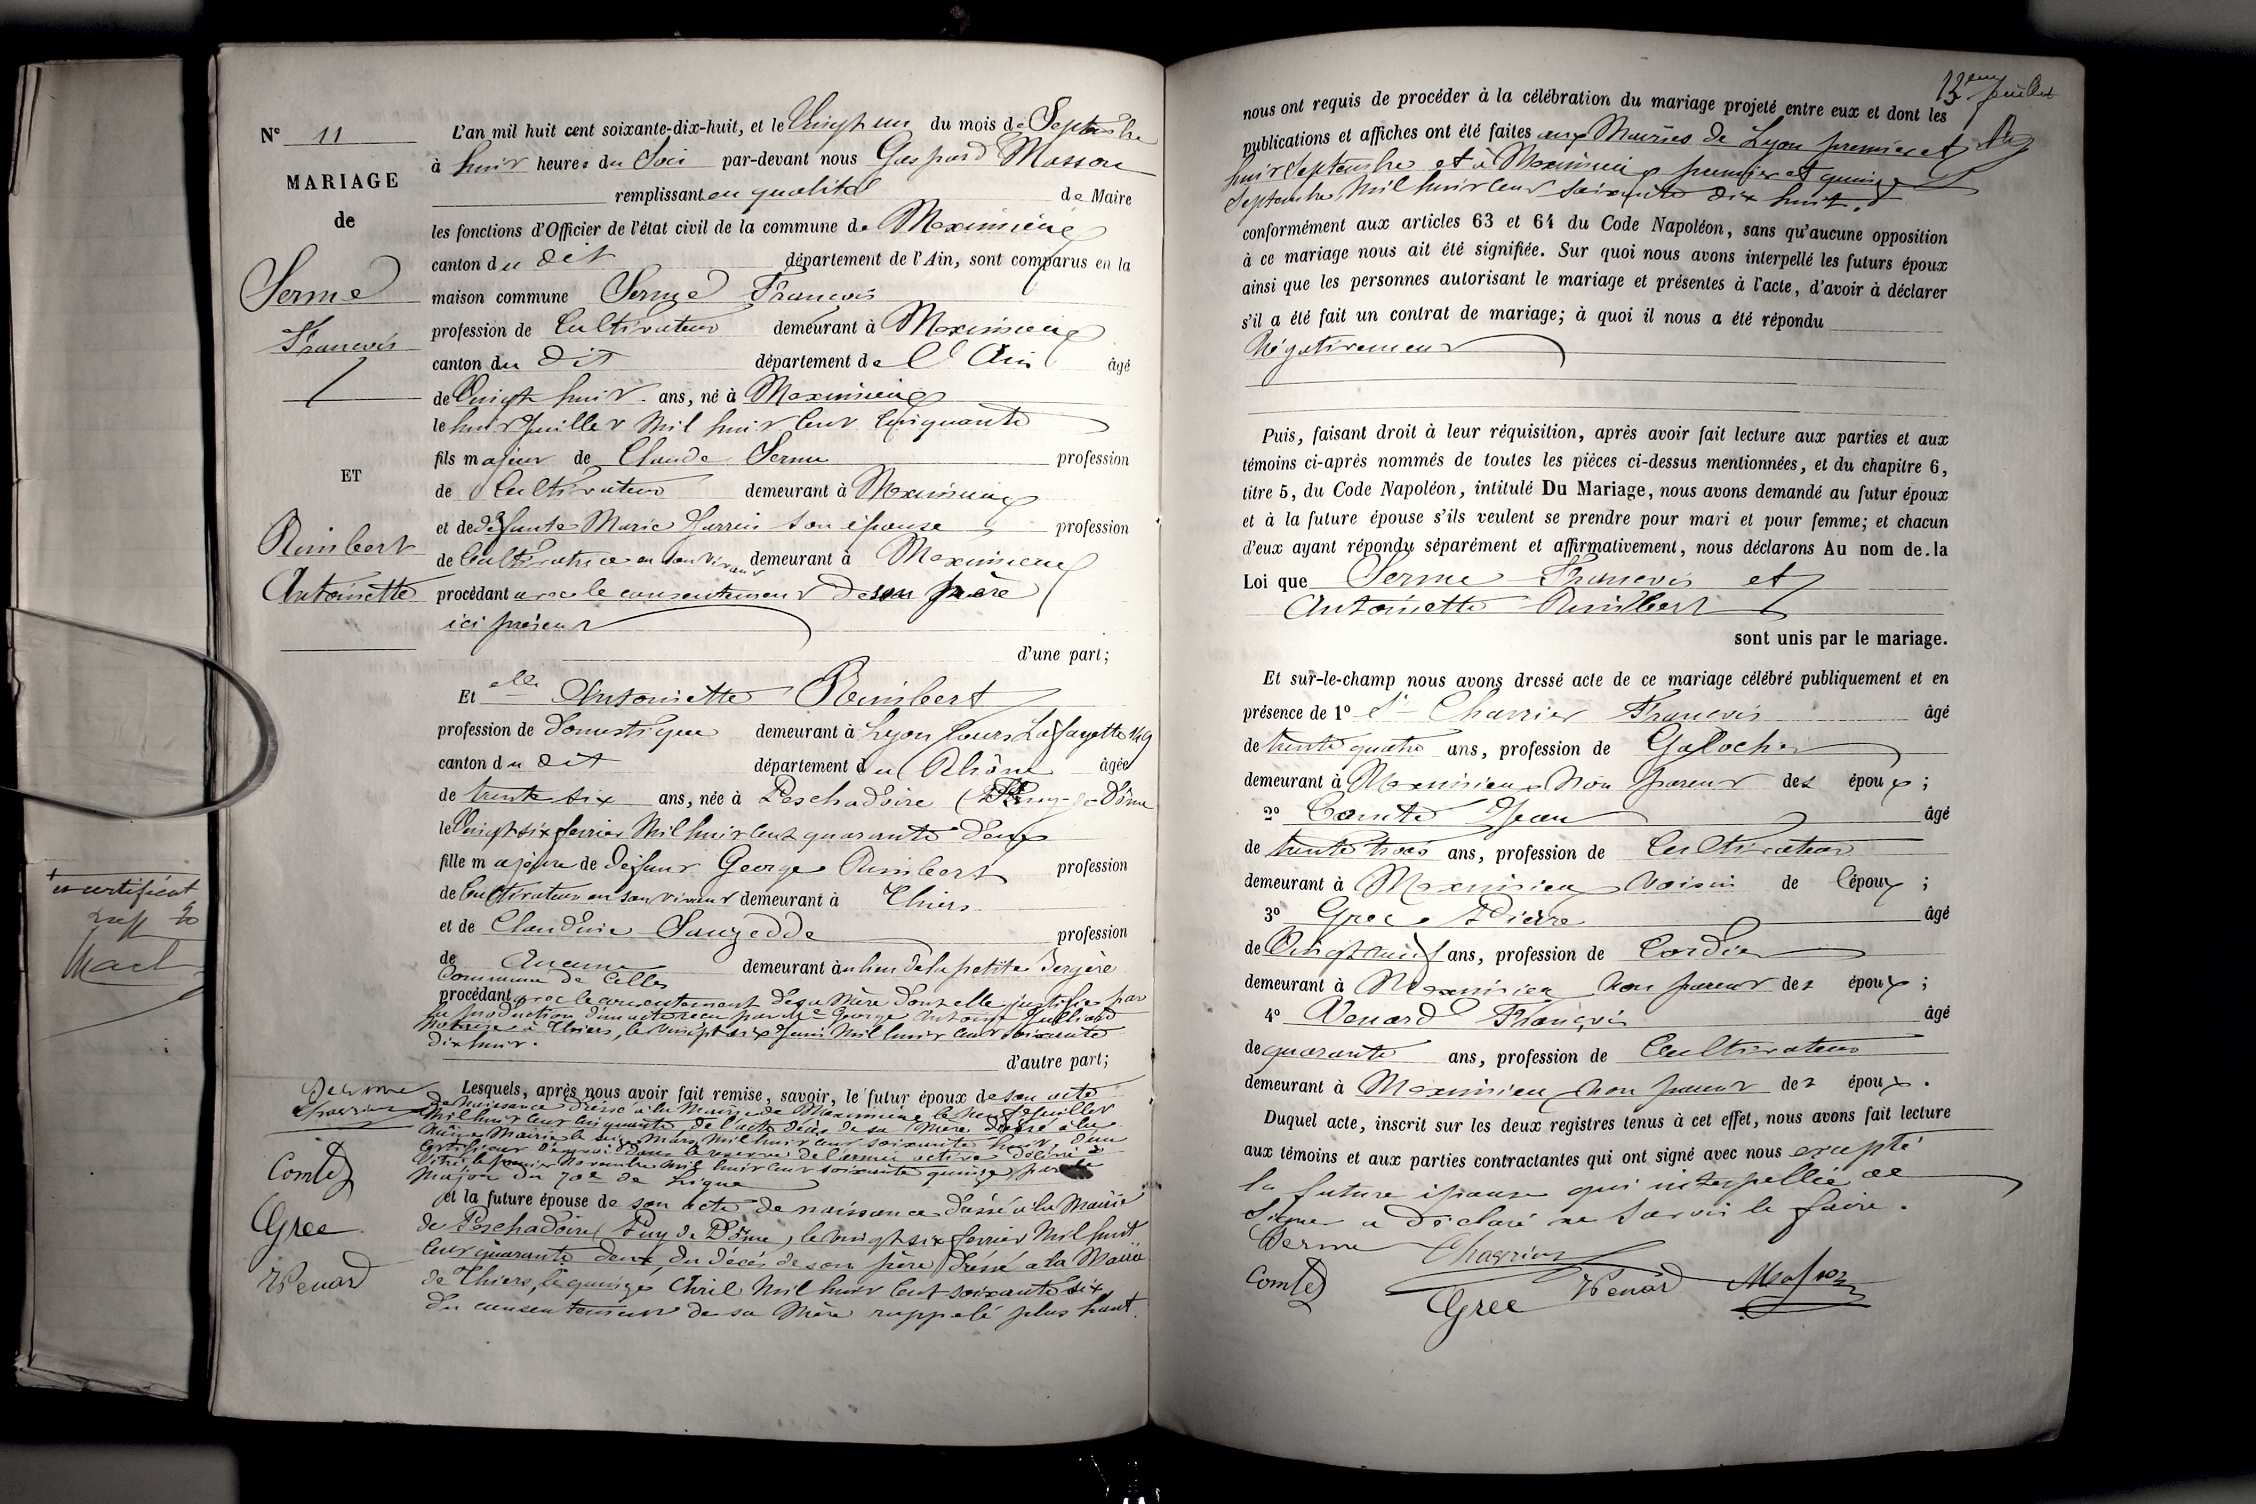 N° 11
MARIAGE
de
Serme
François
ET
Rimbert
Antoinette
L'an mil huit cent soixante-dix-huit, et le Vingt un du mois de Septembre
à huit heures du Soir par-devant nous Gaspard Masson
remplissant en qualité de Maire
les fonctions d'Officier de l'état civil de la commune de Meximieux
canton du dit département de l'Ain, sont comparus en la
maison commune Serme François
profession de Cultivateur demeurant à Meximieux
canton du dit département de l'Ain âgé
de Vingt huit ans, né à Meximieux
le huit Juillet Mil huit Cent Cinquante
fils majeur de Claude Serme profession
de Cultivateur demeurant à Meximieux
et de défunte Marie son épouse profession
de Cultivatrice en son vivant demeurant à Meximieux
procédant avec le consentement de son père
ici présent
d'une part;
Et elle Antoinette Rimbert
profession de domestique demeurant à Lyon Cours Lafayette 149
canton du dit département du Rhône âgée
de trente six ans, née à Peschadoire (Puy-de-Dôme
le Vingt six février Mil huit Cent quarante deux
fille majeure de défunt George Rimbert profession
de Cultivateur en son vivant demeurant à Thiers
et de Claudine Sauzedde profession
de Aucune demeurant au lieu de la petite Bergère
Commune de Celles
procédant avec le consentement de sa Mère dont elle justifie par
la production d'un acte reçu par Me George Antoine
Notaire à Thiers, le vingt six Juin Mil huit Cent soixante
dix huit.
d'autre part;
Lesquels, après nous avoir fait remise, savoir, le futur époux de son acte
de Naissance dressé à la Mairie de Meximieux le huit Juillet
Mil huit Cent Cinquante, de l'acte décès de sa Mère dressé à la
même Mairie le seize Mars Mil huit Cent soixante huit, d'un
Certificat d'envoi dans la réserve de l'armée active délivré à
le premier Novembre Mil huit Cent soixante quinze par le
Major du 70e de Ligne
et la future épouse de son acte de naissance dressé à la Mairie
de Peschadoire (Puy de Dôme, le vingt six février Mil huit
Cent quarante deux, du décès de son père dressé à la Mairie
de Thiers, le quinze Avril Mil huit Cent soixante six,
du consentement de sa Mère rappelé plus haut.
Serme
Comte
Gree
Venard
un certificat
13eme feuillet
nous ont requis de procéder à la célébration du mariage projeté entre eux et dont les
publications et affiches ont été faites aux Mairies de Lyon premier et
huit Septembre et à Meximieux premier et quinze
Septembre, Mil huit Cent soixante dix huit.
conformément aux articles 63 et 64 du Code Napoléon, sans qu'aucune opposition
à ce mariage nous ait été signifiée. Sur quoi nous avons interpellé les futurs époux
ainsi que les personnes autorisant le mariage et présentes à l'acte, d'avoir à déclarer
s'il a été fait un contrat de mariage; à quoi il nous a été répondu
Négativement
Puis, faisant droit à leur réquisition, après avoir fait lecture aux parties et aux
témoins ci-après nommés de toutes les pièces ci-dessus mentionnées, et du chapitre 6,
titre 5, du Code Napoléon, intitulé Du Mariage, nous avons demandé au futur époux
et à la future épouse s'ils veulent se prendre pour mari et pour femme; et chacun
d'eux ayant répondu séparément et affirmativement, nous déclarons Au nom de la
Loi que Serme François et
Antoinette Rimbert
sont unis par le mariage.
Et sur-le-champ nous avons dressé acte de ce mariage célébré publiquement et en
présence de 1° Sr Charrier François âgé
de trente quatre ans, profession de Galochier
demeurant à Meximieux Non parent des époux;
2° Comte Jean âgé
de trente trois ans, profession de Cultivateur
demeurant à Meximieux voisin de l'époux;
3° Gree Pierre âgé
de Vingt neuf ans, profession de Cordier
demeurant à Meximieux Non parent des époux;
4° Venard François âgé
de quarante ans, profession de Cultivateur
demeurant à Meximieux Non parent des époux.
Duquel acte, inscrit sur les deux registres tenus à cet effet, nous avons fait lecture
aux témoins et aux parties contractantes qui ont signé avec nous excepté
la future épouse qui interpellée de
Signer a déclaré ne savoir le faire.
Serme Charrier
Comte Gree Venard Masson